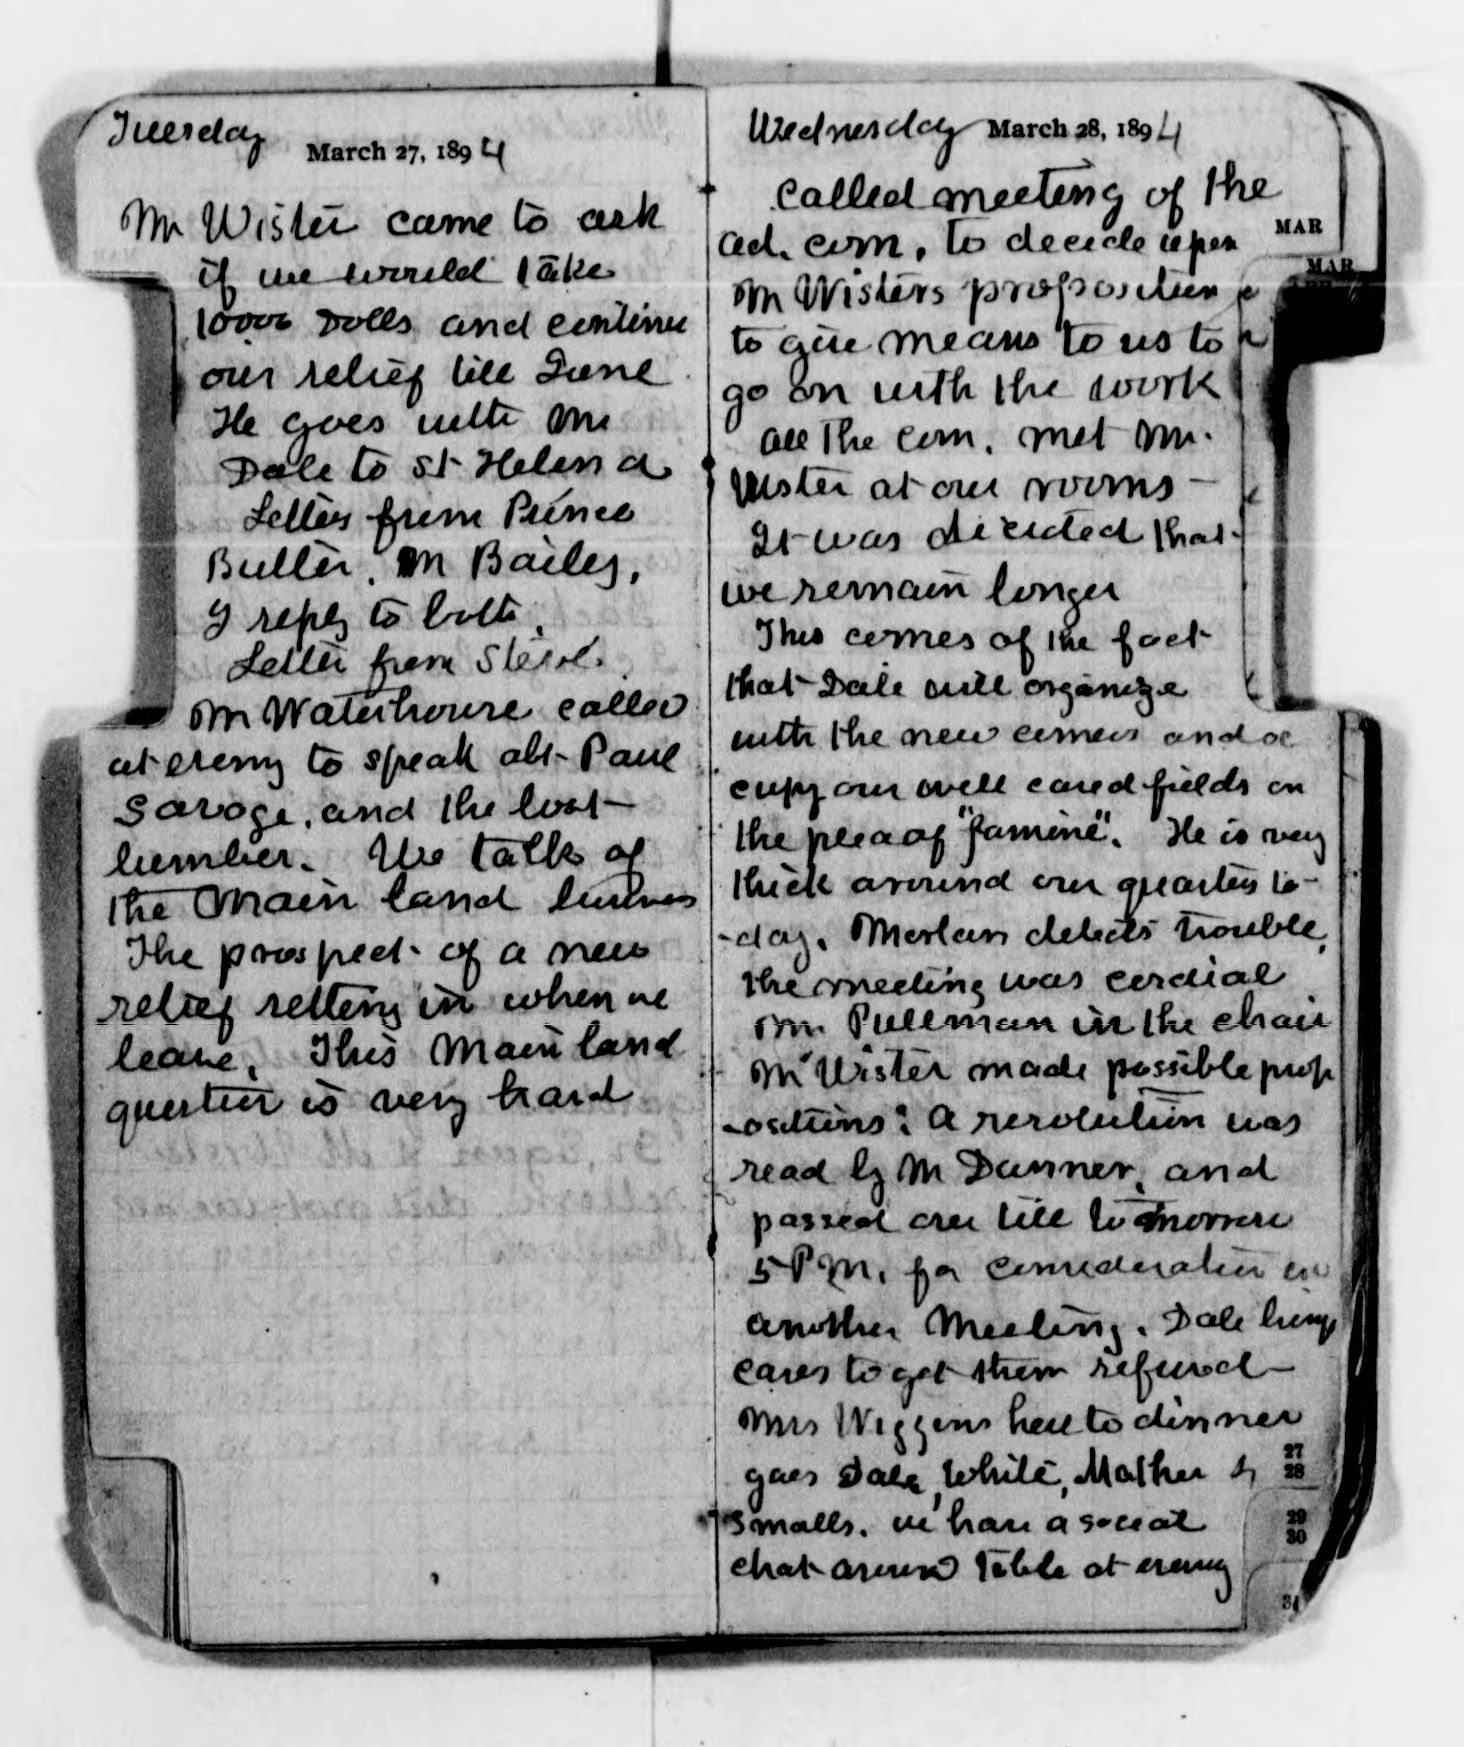 Tuesday
March 27, 1894
Mr Wister came to ask
if we would take
10000 Dolls and continue
our relief till June
He goes with Mr
Dale to St Helena
Letters from Prince
Butler, Mr Bailey,
I reply to both,
Letter from Steve.
Mr Waterhouse called
at eveng to speak abt Paul
Savage, and the lost
lumber. We talk of
the Main land business
The prospect of a new
relief setting in when we
leave. This Main land
question is very hard
Wednesday March 28, 1894
Called meeting of the
ad. com. to decide upon
Mr Wisters proposition
to give means to us to
go on with the work
all the com. met Mr.
Wister at our rooms –
It was decided that
we remain longer
This comes of the fact
that Dale will organize
with the new comers and oc
cupy our well cared fields on
the plea of "famine". He is very
thick around our quarters to-
-day. detects trouble,
the meeting was cordial
Mr. Pullman in the chair
Mr Wister made possible prop
-ositions: A resolution was
read by Mr Danner, and
passed over till tomorrow
5 P.M. for consideration in
another Meeting. Dale
to get them refused –
Mrs Wiggens here to dinner
Dale, White, Mather &
Smalls. we have a social
chat around table at eveng
MAR
MAR
27
28
29
30
31